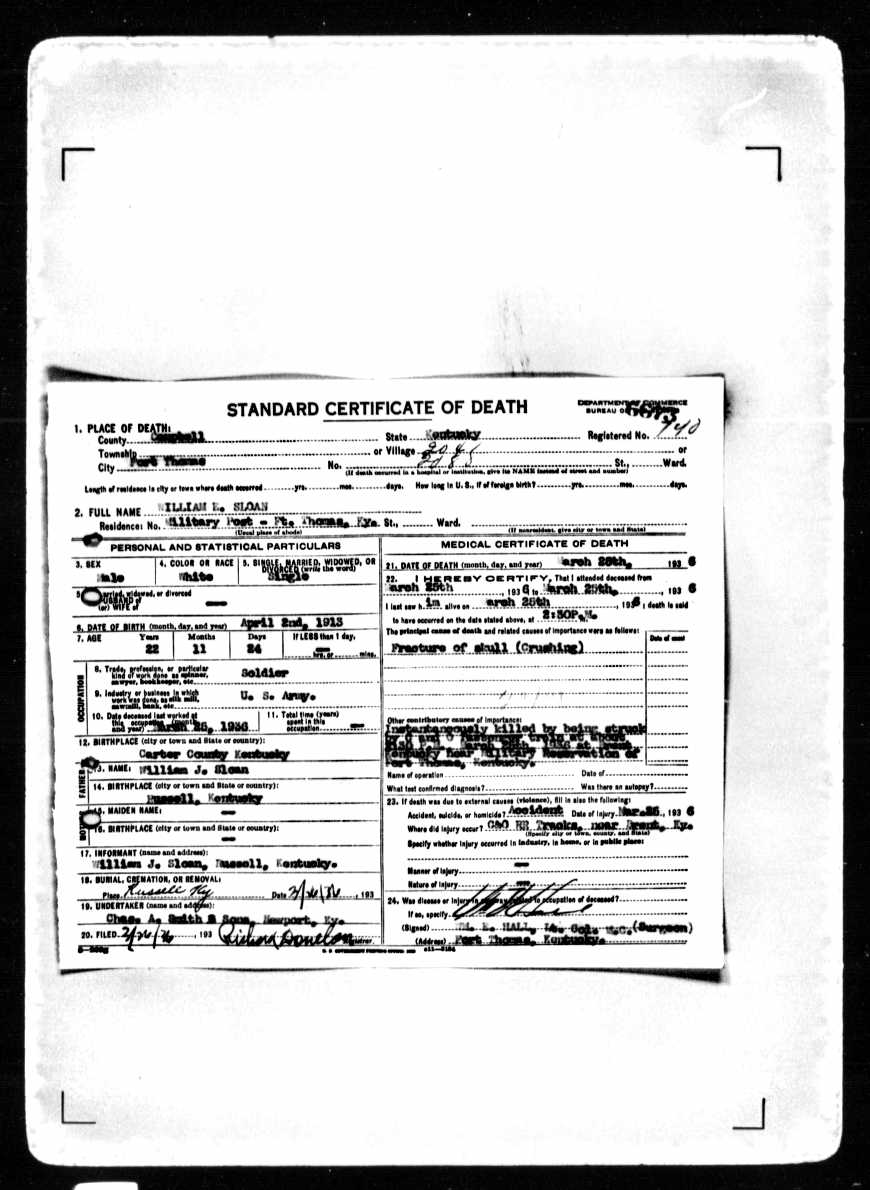 STANDARD CERTIFICATE OF DEATH
DEPARTMENT OF COMMERCE
BUREAU OF
1. PLACE OF DEATH:
County Campbell State Kentucky Registered No. 740
Township or Village or
City Fort Thomas No. St., Ward.
(If death occurred in a hospital or institution, give its NAME instead of street and number)
Length of residence in city or town where death occurred yrs. mos. days. How long in U. S., if of foreign birth? yrs. mos. days.
2. FULL NAME WILLIAM E. SLOAN
Residence: No. Military Post - Ft. Thomas, Ky. St., Ward.
(Usual place of abode) (If nonresident, give city or town and State)
PERSONAL AND STATISTICAL PARTICULARS
3. SEX 4. COLOR OR RACE 5. SINGLE, MARRIED, WIDOWED, OR DIVORCED (write the word)
Male White Single
If married, widowed, or divorced
HUSBAND of
(or) WIFE of
6. DATE OF BIRTH (month, day, and year) April 2nd, 1913
7. AGE Years Months Days If LESS than 1 day,
22 11 24 hrs. or mins.
OCCUPATION
8. Trade, profession, or particular kind of work done as spinner, sawyer, bookkeeper, etc. Soldier
9. Industry or business in which work was done, as silk mill, sawmill, bank, etc. U. S. Army.
10. Date deceased last worked at this occupation (month and year) March 25, 1936
11. Total time (years) spent in this occupation
12. BIRTHPLACE (city or town and State or country):
Carter County Kentucky
FATHER
13. NAME: William J. Sloan
14. BIRTHPLACE (city or town and State or country):
Russell, Kentucky
MOTHER
15. MAIDEN NAME:
16. BIRTHPLACE (city or town and State or country):
17. INFORMANT (name and address):
William J. Sloan, Russell, Kentucky.
18. BURIAL, CREMATION, OR REMOVAL:
Place Russell Ky Date 3/26/36, 193
19. UNDERTAKER (name and address):
Chas. A. Smith & Sons, Newport, Ky.
20. FILED 3/26/36, 193 Richard Donelan Registrar.
MEDICAL CERTIFICATE OF DEATH
21. DATE OF DEATH (month, day, and year) March 25th, 1936
22. I HEREBY CERTIFY, That I attended deceased from
March 25th, 1936 to March 25th, 1936
I last saw him alive on March 25th, 1936, death is said
to have occurred on the date stated above, at 2:30P.M.
The principal cause of death and related causes of importance were as follows:
Date of onset
Fracture of skull (Crushing)
Other contributory causes of importance:
Instantaneously killed by being struck
by C and O Passenger train at about
2:30 P.M. March 25th, 1936 at Brent
Kentucky near Military Reservation of
Fort Thomas, Kentucky.
Name of operation Date of
What test confirmed diagnosis? Was there an autopsy?
23. If death was due to external causes (violence), fill in also the following:
Accident, suicide, or homicide? Accident Date of injury Mar.25, 1936
Where did injury occur? C&O RR Tracks, near Brent, Ky.
(Specify city or town, county, and State)
Specify whether injury occurred in industry, in home, or in public place:
Manner of injury
Nature of injury
24. Was disease or injury in any way related to occupation of deceased?
If so, specify
(Signed) WM. E. HALL, Lt. Col. M.C. (Surgeon)
(Address) Fort Thomas, Kentucky.